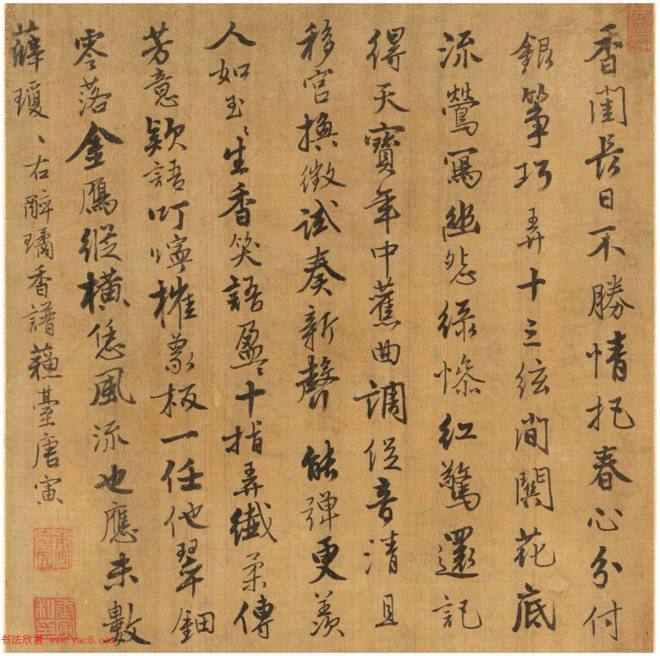 香閨長日不勝情把春心分付
銀箏巧弄十三絃間關花底
流鶯寫幽怨綠慘紅驚還記
得天寶年中舊曲調促音清且
移宮換徵試奏新聲能彈更羨
人如玉〻生香笑語盈〻十指弄纖柔傳
芳意欵語叮嚀摧象板一任他翠鈿
零落金鴈縱橫恁風流也應未數
薛瓊〻右醉璚香譜蘇臺唐寅
书法欣赏 www.yac8.com